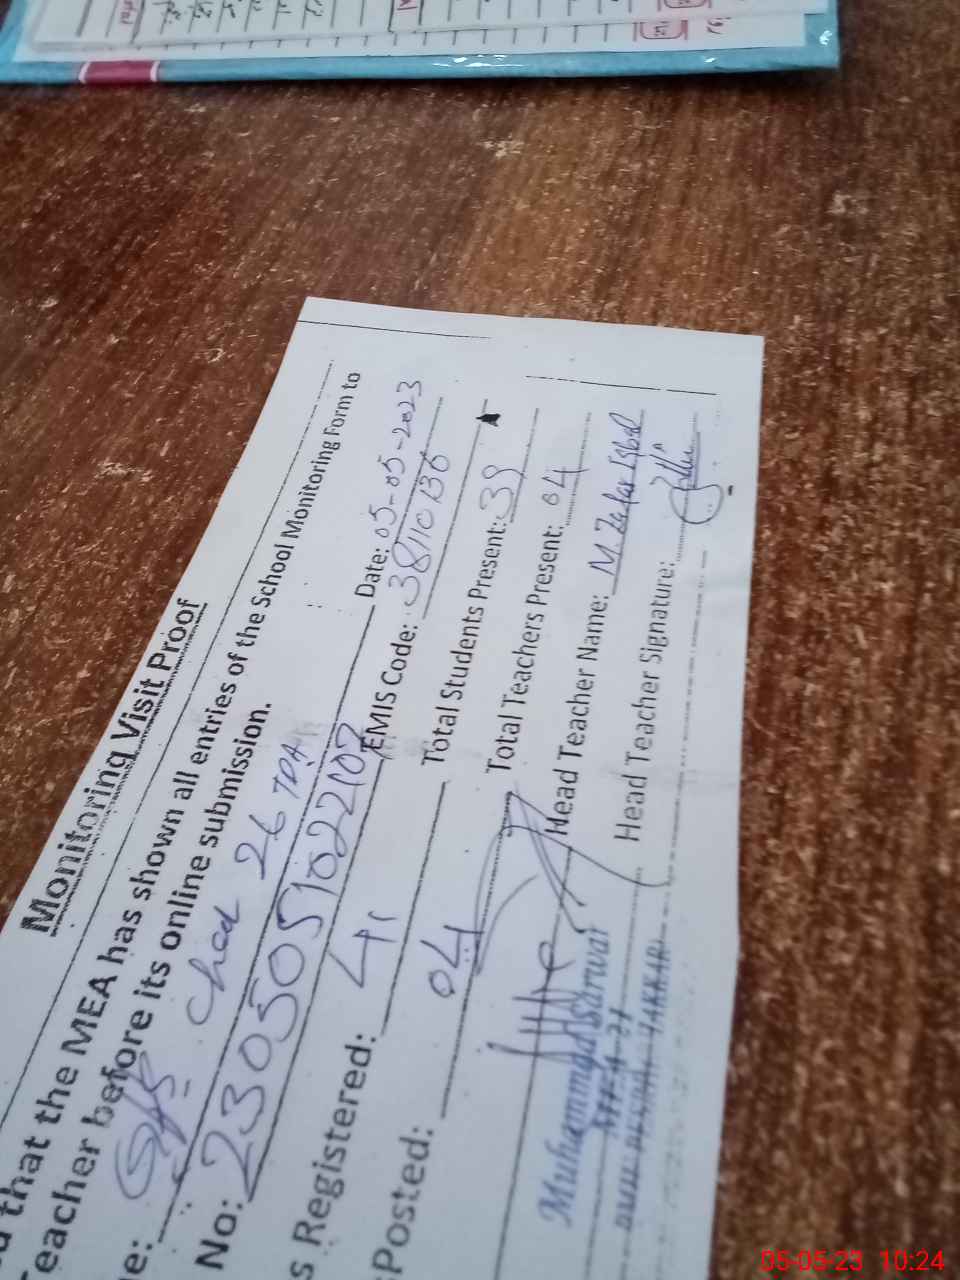 Monitoring Visit Proof
that the MEA has shown all entries of the School Monitoring Form to
eacher before its online submission.
e: GPS Chak 26 TDA Date: 05-05-2023
No: 230505102210 EMIS Code: 38110136
s Registered: 41 Total Students Present: 39
Posted: 04 Total Teachers Present: 04
Head Teacher Name: M. Zafar Iqbal
Head Teacher Signature:
Muhammad Sarwar
05-05-23 10:24